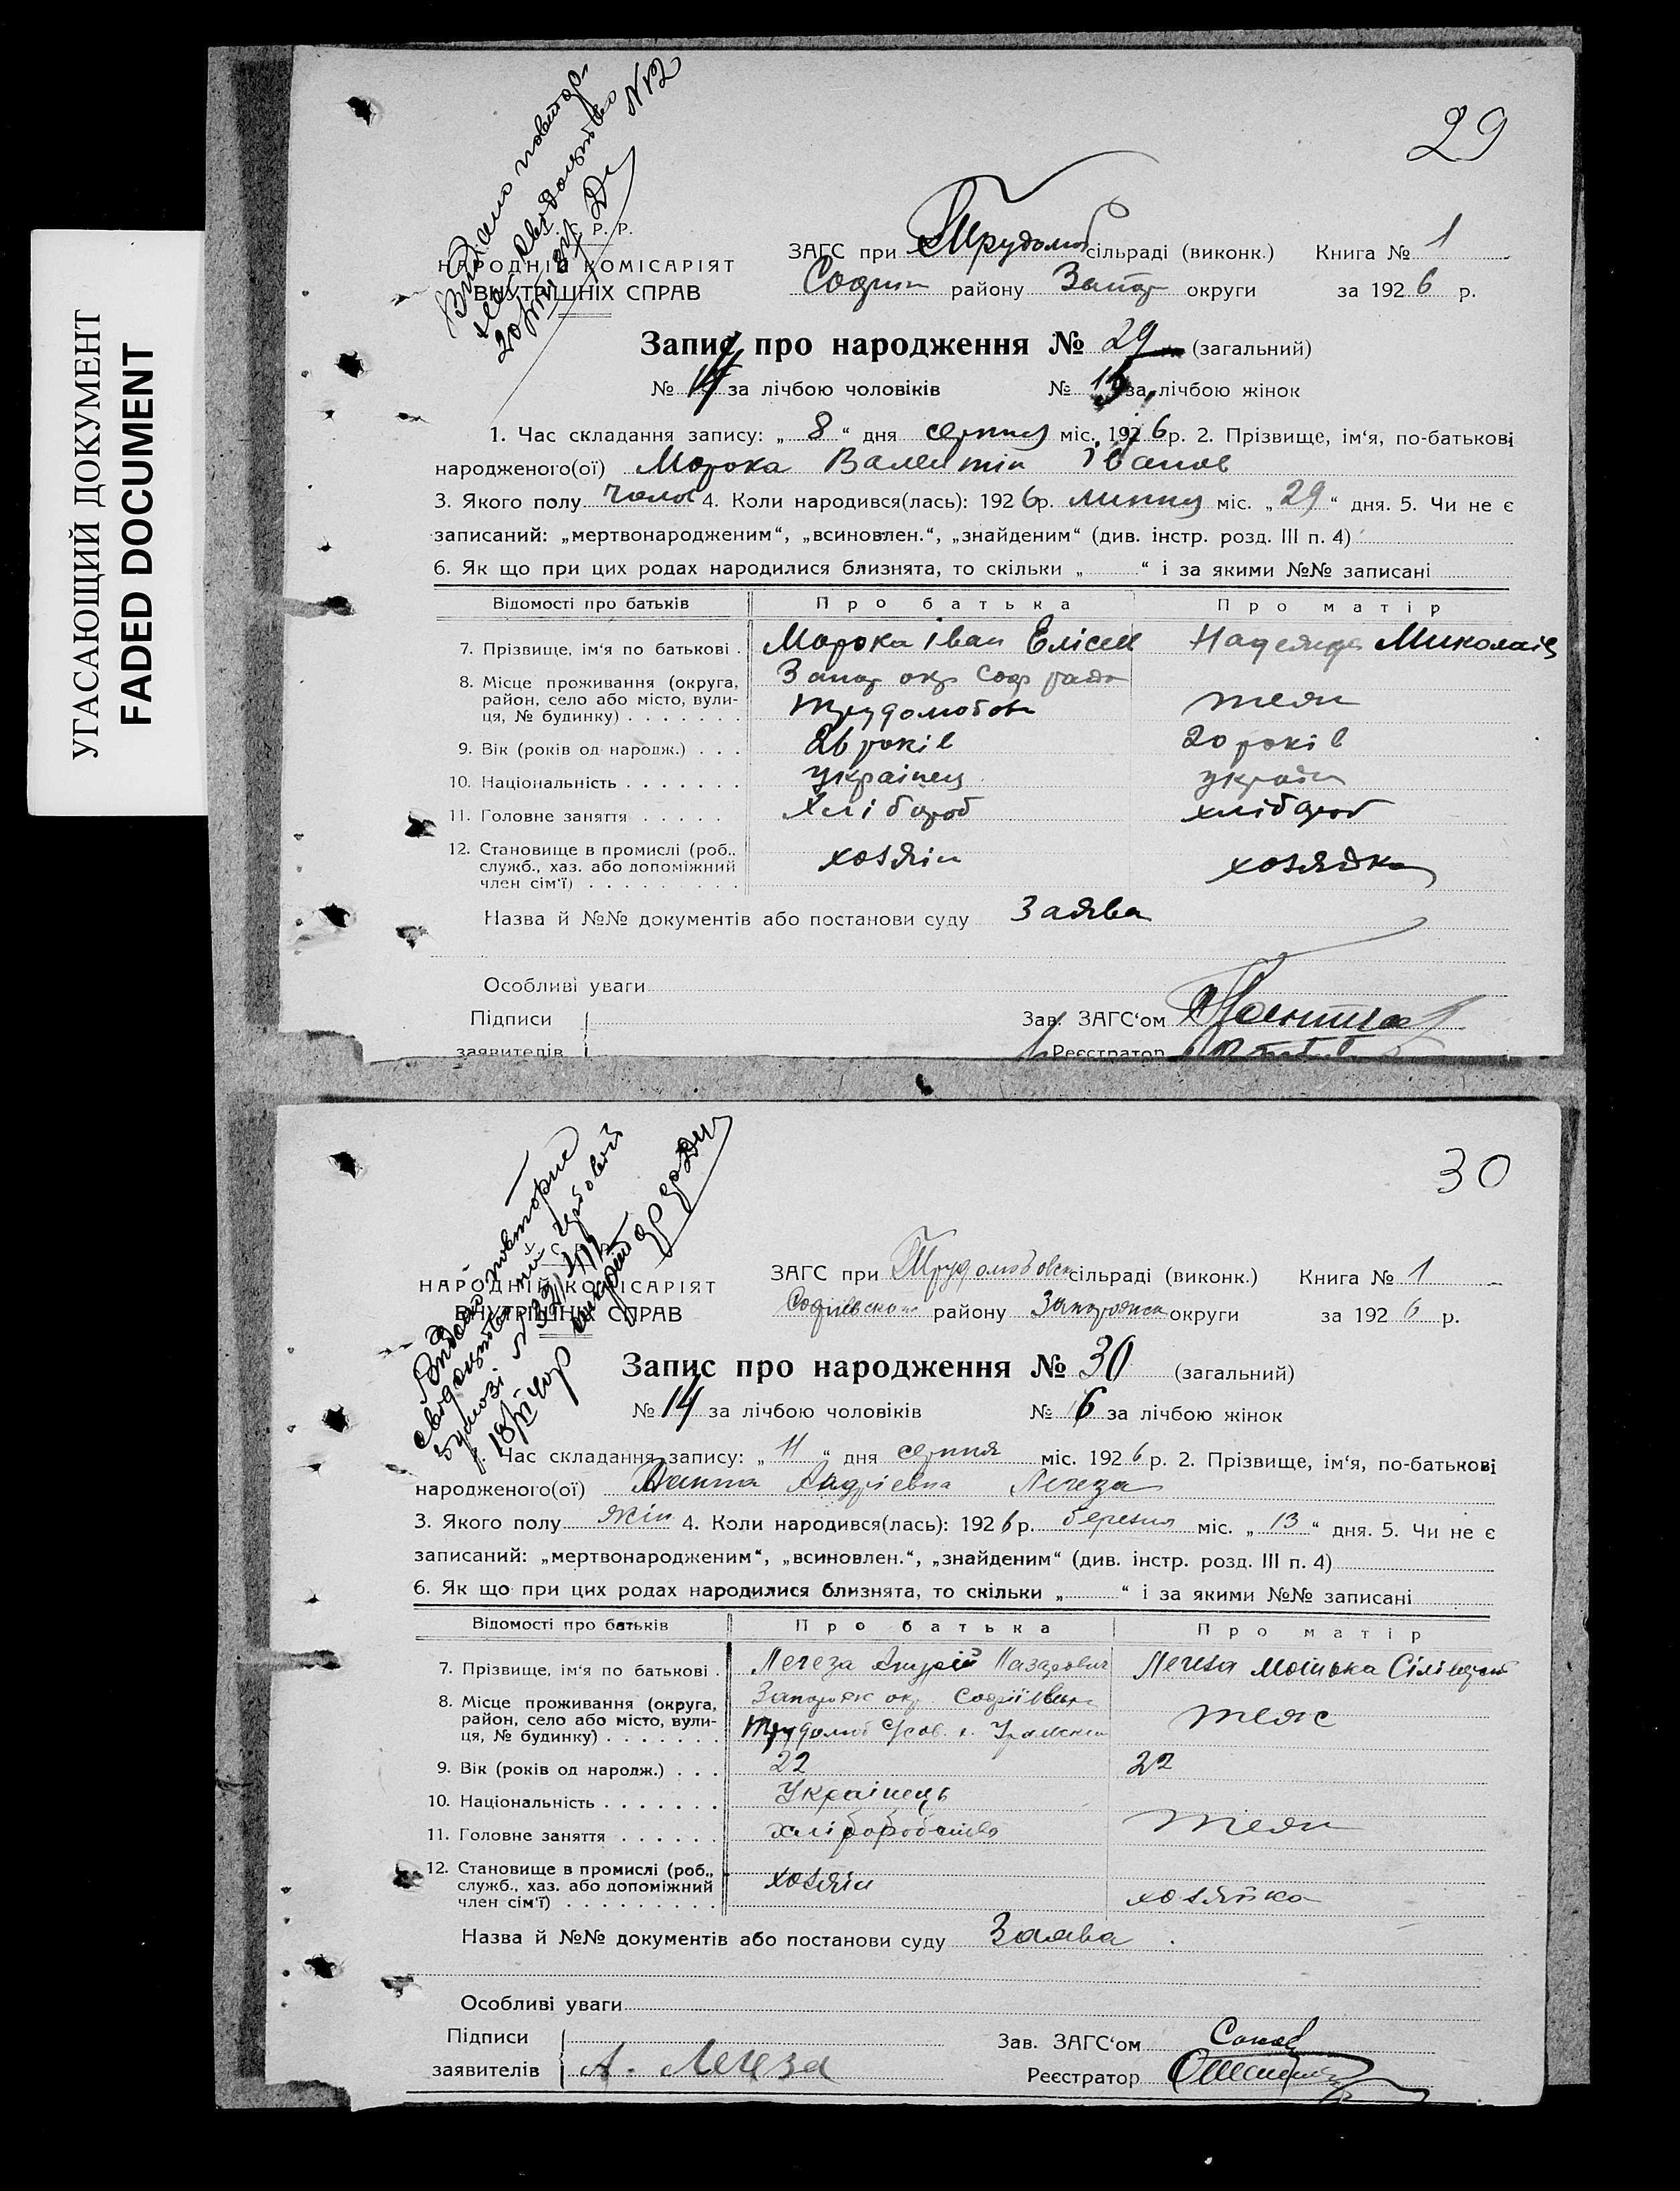 УГАСАЮЩИЙ ДОКУМЕНТ
FADED DOCUMENT
29
Видано повтор
свідоцтво №12
Р. Р.
НАРОДНІЙ КОМІСАРІЯТ
ВНУТРІШНІХ СПРАВ
ЗАГС при Трудолюб сільраді (виконк.) Книга № 1
Софии району Запор округи за 1926 р.
Запис про народження № 29 (загальний)
№ 14 за лічбою чоловіків № 15 за лічбою жінок
1. Час складання запису: „ 8 “ дня серпня міс. 1926 р. 2. Прізвище, ім‘я, по-батькові
народженого(ої) Морока Валентін Іванов
3. Якого полу чолов 4. Коли народився(лась): 1926 р. липня міс. „ 29 “ дня. 5. Чи не є
записаний: „мертвонародженим“, „всиновлен.“, „знайденим“ (див. інстр. розд. III п. 4)
6. Як що при цих родах народилися близнята, то скільки „ “ і за якими №№ записані
Відомості про батьків Про батька Про матір
7. Прізвище, ім‘я по батькові . Морока Іван Елісей Надежда Миколаїв
8. Місце проживання (округа, Запор окр Соф район
район, село або місто, вули- Трудолюбов теж
ця, № будинку) . . . . . . .
9. Вік (років од народж.) . . . 26 років 20 років
10. Національність . . . . . . . українец україн
11. Головне заняття . . . . . Хлібороб хлібороб
12. Становище в промислі (роб.,
служб., хаз. або допоміжний хозяїн хозяйка
член сім‘ї) . . . . . . . . .
Назва й №№ документів або постанови суду Заява
Особливі уваги
Підписи Зав. ЗАГС‘ом
заявителів Реєстратор
30
Видано повторне
свідоцтво
НАРОДНІЙ КОМІСАРІЯТ
ВНУТРІШНІХ СПРАВ
ЗАГС при Трудолюбовск сільраді (виконк.) Книга № 1
Софіевском району Запорожск округи за 1926 р.
Запис про народження № 30 (загальний)
№ 14 за лічбою чоловіків № 16 за лічбою жінок
1. Час складання запису: „ 11 “ дня серпня міс. 1926 р. 2. Прізвище, ім‘я, по-батькові
народженого(ої) Андріевна Легеза
3. Якого полу жін 4. Коли народився(лась): 1926 р. березня міс. „ 13 “ дня. 5. Чи не є
записаний: „мертвонародженим“, „всиновлен.“, „знайденим“ (див. інстр. розд. III п. 4)
6. Як що при цих родах народилися близнята, то скільки „ “ і за якими №№ записані
Відомості про батьків Про батька Про матір
7. Прізвище, ім‘я по батькові . Легеза Андрій Назарович Легеза
8. Місце проживання (округа, Запорож окр. Софіївськ
район, село або місто, вули- Трудолюб теж
ця, № будинку) . . . . . . .
9. Вік (років од народж.) . . . 22 22
10. Національність . . . . . . . Українець
11. Головне заняття . . . . . . хліборобство теж
12. Становище в промислі (роб.,
служб., хаз. або допоміжний хозяїн хозяйка
член сім‘ї) . . . . . . . . .
Назва й №№ документів або постанови суду Заява
Особливі уваги
Підписи Зав. ЗАГС‘ом
заявителів А. Легеза Реєстратор